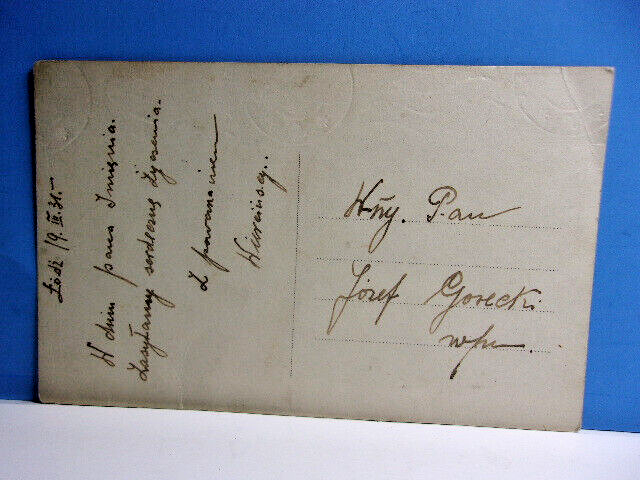 Łódź 19. III. 31.-
W dniu pana Imienia.
Zasyłamy serdeczne życzenia.
Z poważaniem
WPny. Pan
Józef Gorecki
w/m.